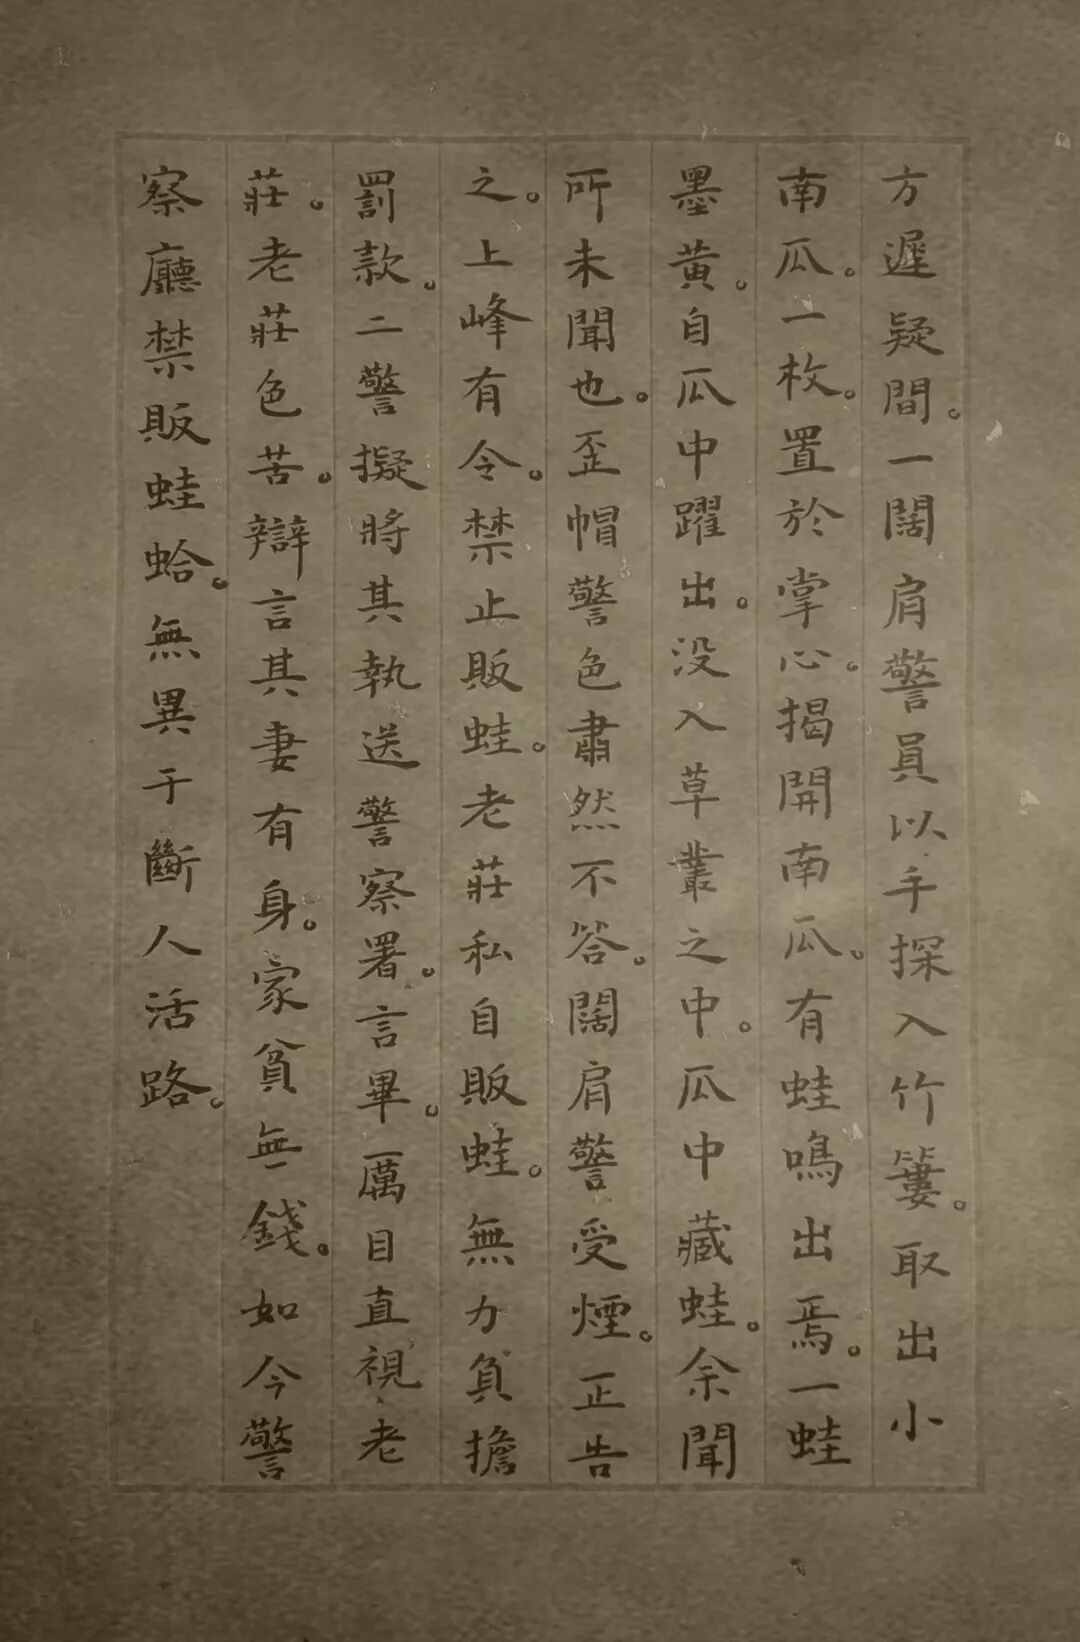 方遲疑間。一闊肩警員以手探入竹簍。取出小
南瓜。一枚。置於掌心。揭開南瓜。有蛙鳴出焉。一蛙
墨黃。自瓜中躍出。没入草叢之中。瓜中藏蛙。余聞
所未聞也。歪帽警色肅然不答。闊肩警受煙。正告
之。上峰有令。禁止販蛙。老莊私自販蛙。無力負擔
罰款。二警擬將其執送警察署。言畢。厲目直視老
莊。老莊色苦。辯言其妻有身。家貧無錢。如今警
察廳禁販蛙蛤。無異于斷人活路。